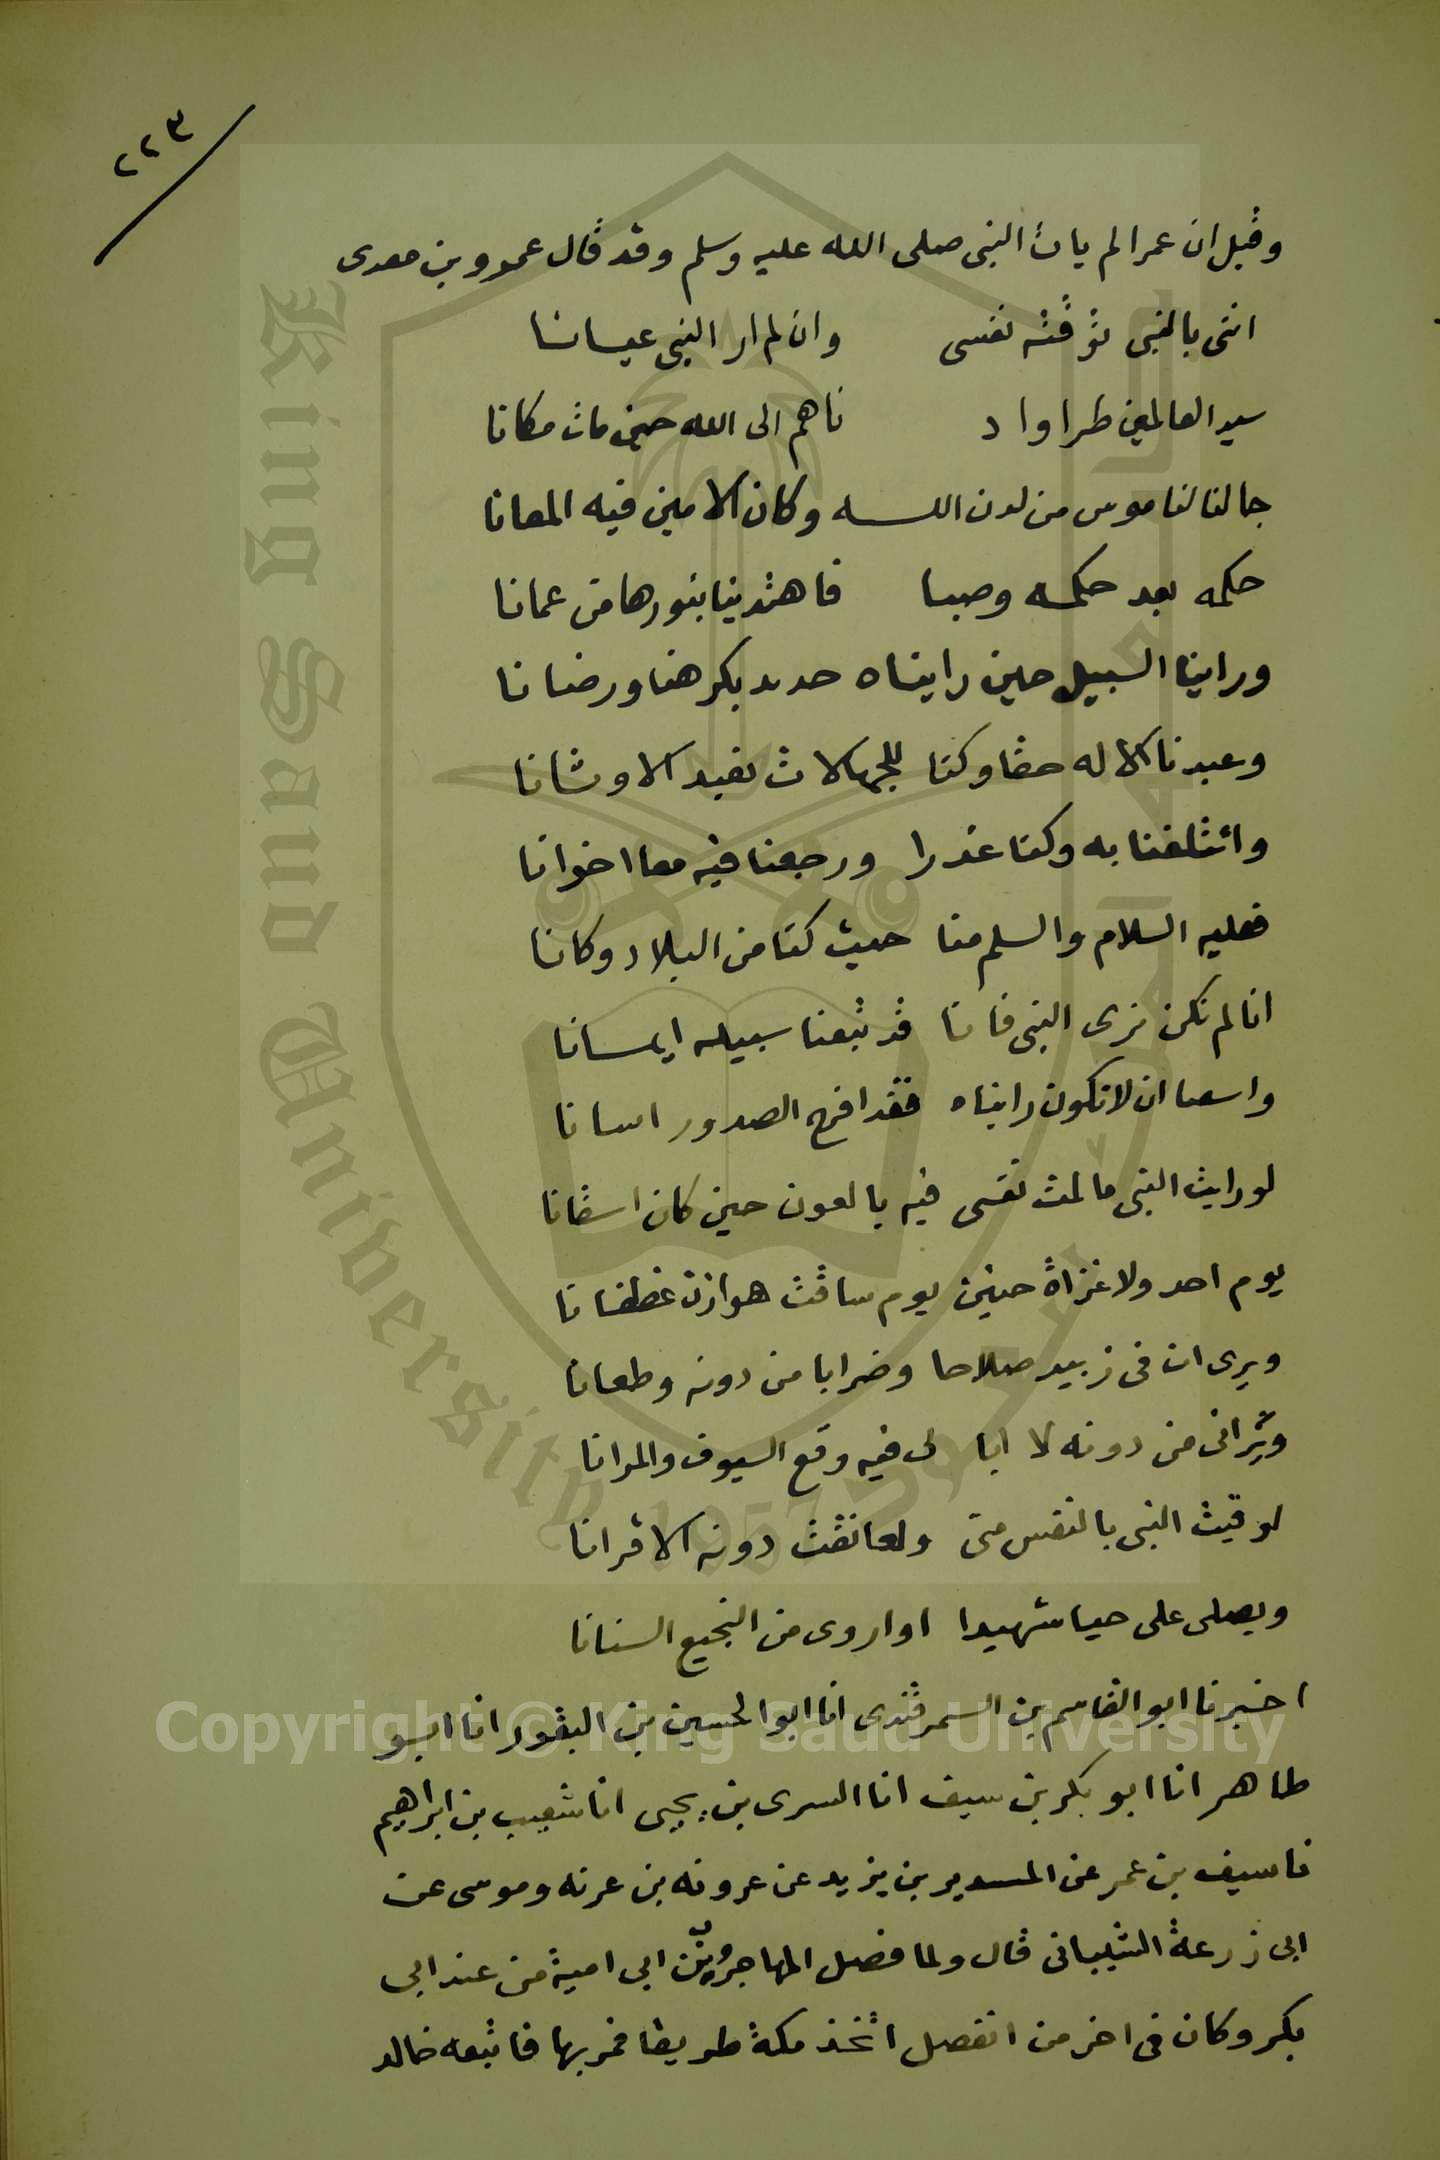 ٢٢٣
وقيل ان عمرا لم يات النبى صلى الله عليه وسلم وقد قال عمرو بن معدى
اننى بالنبى موقنه نفسى وان لم ار النبى عيانا
سيد العالمين طرا واد ناهم الى الله حين مات مكانا
جا لنا لناموس من لدن الله وكان الامين فيه المعانا
حكمه بعد حكمه وضيا فاهتدينا بنورها من عمانا
وراينا السبيل حين رايناه حديد بكرهنا ورضانا
وعبدنا الاله حقا وكنا للجهالات نعبد الاوثانا
وائتلفنا به وكنا عدرا ورجعنا فيه معا اخوانا
فعليه السلام والسلم منا حيث كنا من البلاد وكانا
انا لم نكن نرى النبى فانا قد تبعنا سبيله ايمانا
ان لا نكون رايناه فقد الصدور
لو رايت النبى ما لمت نفسى فيه بالعون حين كان استقانا
يوم احد ولا غزاة حنين يوم ساقت هوازن غطفانا
ويرى ان فى زبيد صلاحا وضرابا من دونه وطعانا
ويرانى من دونه لا ابا لى فيه وقع السيوف والمرانا
لوقيت النبى بالنفس منى ولعانقت دونه الاقرانا
ويصلى على حيا شهيدا او اروى من النجيع السنانا
اخبرنا ابو القاسم بن السمرقندى انا ابو الحسين بن النقور انا ابو
طاهر انا ابو بكر بن سيف انا السرى بن يحيى انا شعيب بن ابراهيم
نا سيف بن عمر عن المستنير بن يزيد عن عروة بن عزنه وموسى عن
ابى زرعة الشيبانى قال ولما فصل المهاجر بن ابى امية من عند ابى
بكر وكان فى اخر من انفصل اتخذ مكة طريقا فمر بها فاتبعه خالد
King Saud University
1957
Copyright © King Saud University